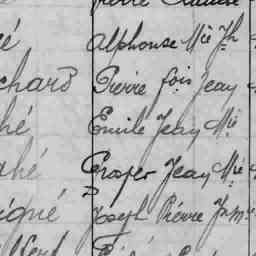 é Alphonse Mie Jh
chard Pierre fois Jean
hé Emile Jean Mie
ahé Prosper Jean Mie
igné Joseph Pierre